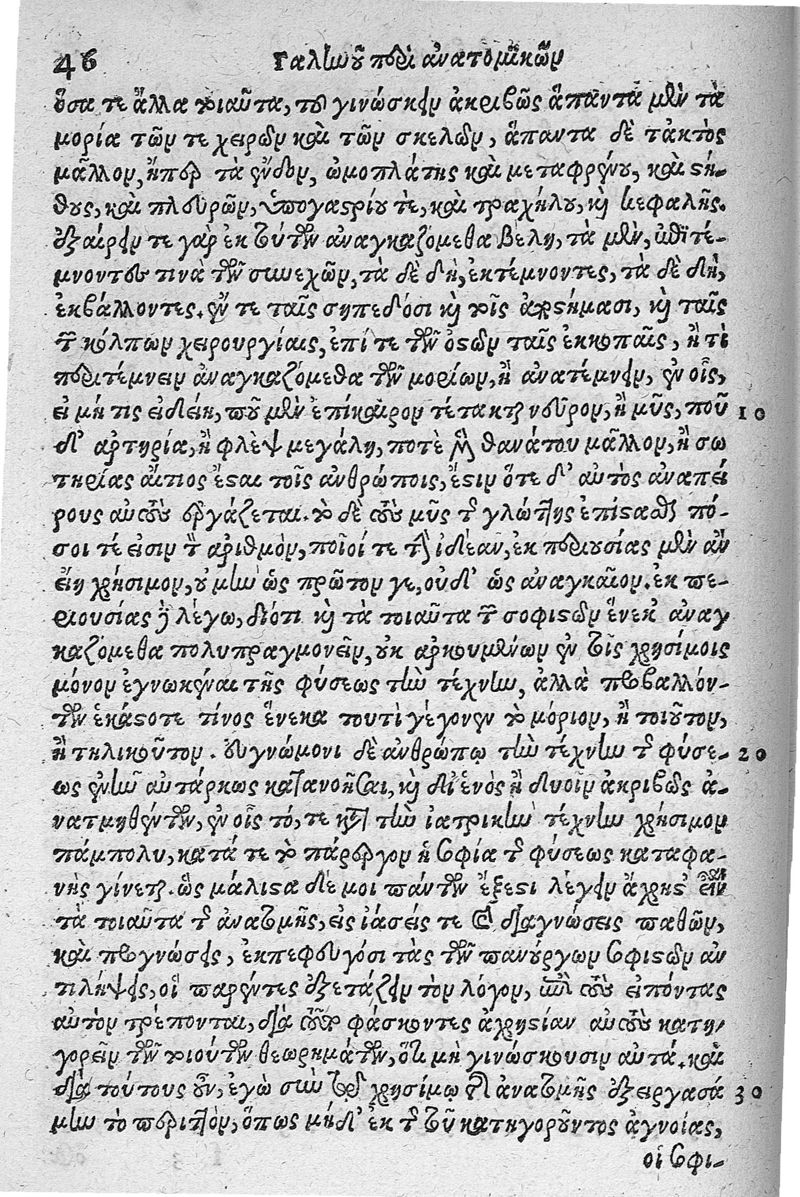 46 Γαλίωοῦ περὶ ἀνατομικῶν
ὅσα τε ἄλλα τοιαῦτα, τοῦ γινώσκειν ἀκριβῶς ἅπαντα μὲν τὰ
μορία τῶν τε χειρῶν καὶ τῶν σκελῶν, ἅπαντα δὲ τἀκτὸς
μᾶλλον, ἤπερ τὰ ἔνδον, ὠμοπλάτης καὶ μεταφρένου, καὶ στή-
θους, καὶ πλευρῶν, ὑπογαστρίου τε, καὶ τραχήλου, καὶ κεφαλῆς.
ἐξαίρειν τε γὰρ ἐκ τούτων ἀναγκαζόμεθα βέλη, τὰ μὲν, ἐπιτέ-
μνοντές τινὰ τῶν συνεχῶν, τὰ δὲ δὴ, ἐκτέμνοντες, τὰ δὲ δὴ,
ἐκβάλλοντες. ἔν τε ταῖς σηπεδόσι καὶ τοῖς ἀποστήμασι, καὶ ταῖς
τῶν κόλπων χειρουργίαις, ἐπί τε τῶν ὀστῶν ταῖς ἐκκοπαῖς, ἤ τι
περιτέμνειν ἀναγκαζόμεθα τῶν μορίων, ἢ ἀνατέμνειν, ἐν οἷς,
εἰ μή τις εἰδείη, ποῦ μὲν ἐπίκαιρον τέτακται νεῦρον, ἢ μῦς, ποῦ 10
δ' ἀρτηρία, ἢ φλὲψ μεγάλη, ποτὲ μὲν θανάτου μᾶλλον, ἢ σω
τηρίας αἴτιος ἔσται τοῖς ἀνθρώποις, ἔστιν ὅτε δ' αὐτὸς ἀναπεί
ρους αὐτοὺς ἐργάζεται. τὸ δὲ τοὺς μῦς τῆς γλώττης ἐπίστασθαι πό-
σοι τέ εἰσιν τὸν ἀριθμὸν, ποῖοί τε τὴν ἰδέαν, ἐκ περιουσίας μὲν ἂν
εἴη χρήσιμον, οὐ μὴν ὡς πρῶτον γε, οὐδ' ὡς ἀναγκαῖον. ἐκ πε-
ριουσίας δὲ λέγω, διότι καὶ τὰ τοιαῦτα τῶν σοφιστῶν ἕνεκ' ἀναγ
καζόμεθα πολυπραγμονεῖν, οὐκ ἀρκουμένων ἐν τοῖς χρησίμοις
μόνον ἐγνωκέναι τῆς φύσεως τὴν τέχνην, ἀλλὰ προβαλλόν-
των ἑκάστοτε τίνος ἕνεκα τουτὶ γέγονεν τὸ μόριον, ἢ τοιοῦτον,
ἢ τηλικοῦτον. εὐγνώμονι δὲ ἀνθρώπῳ τὴν τέχνην τῆς φύσε- 20
ως ἐνῆν αὐτάρκως κατανοῆσαι, καὶ δι' ἑνὸς ἢ δυοῖν ἀκριβῶς ἀ-
νατμηθέντων, ἐν οἷς τό, τε κατὰ τὴν ἰατρικὴν τέχνην χρήσιμον
πάμπολυ, κατά τε τὸ πάρεργον ἡ σοφία τῆς φύσεως καταφα-
νὴς γίνεται. ὡς μάλιστα δέ μοι πάντων ἔξεστι λέγειν ἄχρηστ' εἶναι
τὰ τοιαῦτα τῆς ἀνατομῆς, εἰς ἰάσεις τε καὶ διαγνώσεις παθῶν,
καὶ προγνώσεις, ἐκπεφευγόσι τὰς τῶν πανούργων σοφιστῶν ἀν
τιλήψεις, οἳ παρέντες ἐξετάζειν τὸν λόγον, ἐπὶ τοὺς εἰπόντας
αὐτὸν τρέπονται, διὰ τοῦτο φάσκοντες ἀχρηστίαν αὐτοὺς κατη-
γορεῖν τῶν τοιούτων θεωρημάτων, ὅτι μὴ γινώσκουσιν αὐτά. καὶ
διὰ τούτους οὖν, ἐγὼ σὺν τῷ χρησίμῳ τῆς ἀνατομῆς ἐξειργασά 30
μην τὸ περιττὸν, ὅπως μήδ' ἐκ τῆς τοῦ κατηγοροῦντος ἀγνοίας,
οἱ σοφι-